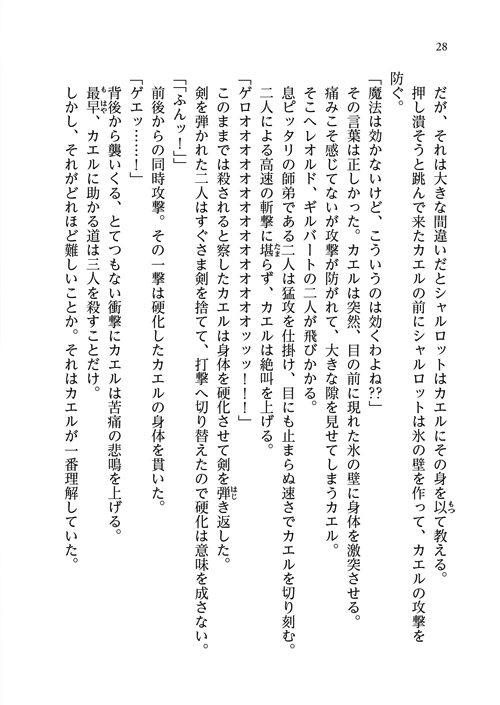 28
だが、それは大きな間違いだとシャルロットはカエルにその身を以て教える。
押し潰そうと跳んで来たカエルの前にシャルロットは氷の壁を作って、カエルの攻撃を
防ぐ。
「魔法は効かないけど、こういうのは効くわよね??」
その言葉は正しかった。カエルは突然、目の前に現れた氷の壁に身体を激突させる。
痛みこそ感じてないが攻撃が防がれて、大きな隙を見せてしまうカエル。
そこへレオルド、ギルバートの二人が飛びかかる。
息ピッタリの師弟である二人は猛攻を仕掛け、目にも止まらぬ速さでカエルを切り刻む。
二人による高速の斬撃に堪らず、カエルは絶叫を上げる。
「ゲロオオオオオオオオオオオオオオッッッ!!!」
このままでは殺されると察したカエルは身体を硬化させて剣を弾き返した。
剣を弾かれた二人はすぐさま剣を捨てて、打撃へ切り替えたので硬化は意味を成さない。
「「ふんッ!」」
前後からの同時攻撃。その一撃は硬化したカエルの身体を貫いた。
「ゲエッ……!」
背後から襲いくる、とてつもない衝撃にカエルは苦痛の悲鳴を上げる。
最早、カエルに助かる道は三人を殺すことだけ。
しかし、それがどれほど難しいことか。それはカエルが一番理解していた。